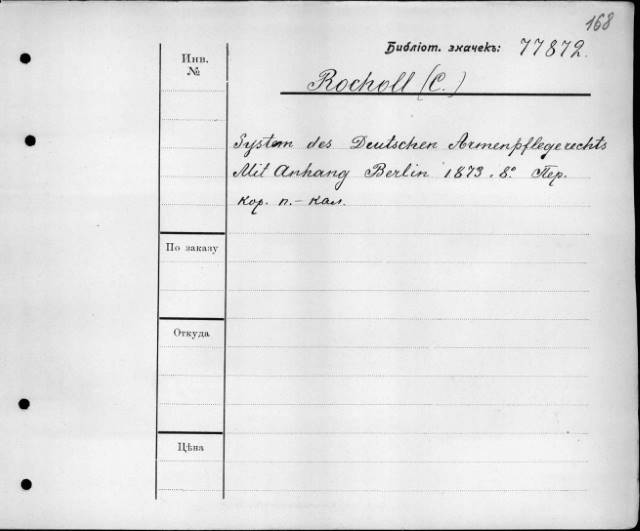 168
Библіот. значекъ: 77872.
Инв.
№
Rocholl (C.)
System des Deutschen Armenpflegerechts
Mit Anhang Berlin 1873. 8° Пер.
кор. п.- кал.
По заказу
Откуда
Цѣна